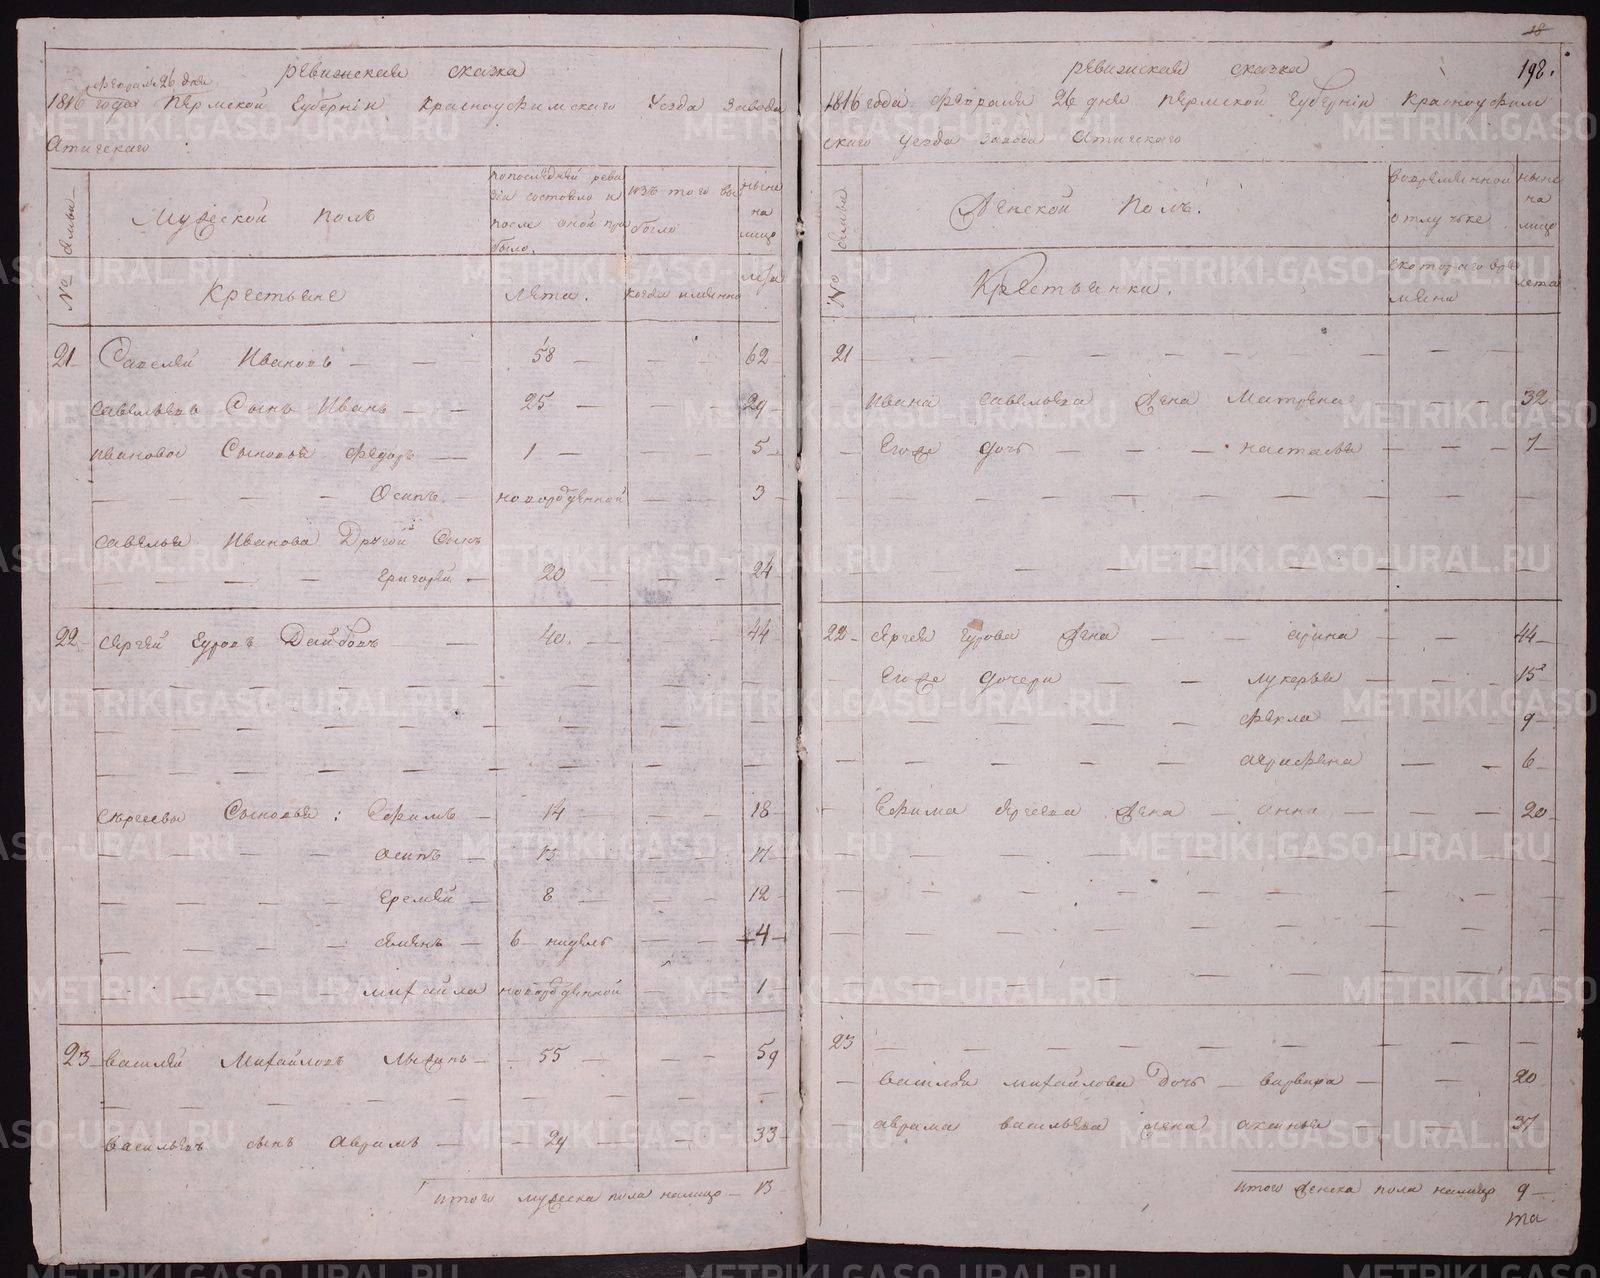 Ревизская сказка
февраля 26 дня
1816 года Пермской Губернiи Красноуфимского Уезда Завода
Атигскаго
№ Семьи
Мужеской полъ
по последней реви
зiи состояло и
после оной при
было.
изъ того вы
было
ныне
на
лицо
Крестьяне
Лета.
когда именно
лета
21 Савелей Ивановъ 58 62
Савельевъ Сынъ Иванъ 25 29
Ивановы Сыновья Федоръ 1 5
Осипъ новорожденной 3
Савелья Иванова Другой Сынъ
Григорей 20 24
22 Сергей Гуровъ 40 44
Сергеевы Сыновья: Ефимъ 14 18
Осипъ 13 17
Еремей 8 12
Семенъ 6 нидель 4
Михайла новорожденной 1
23 Василей Михайловъ 55 59
Васильевъ сынъ Аврамъ 29 33
Итого мужеска пола налицо 13
18
198.
Ревизская сказка
1816 года Февраля 26 дня Пермской Губернiи Красноуфим
скаго Уезда Завода Атигскаго
№ Семьи
Женской полъ.
во временной
отлучке
ныне
на
лицо
Крестьянки.
с котораго вре
мяни
лета
21
Ивана Савельева Жена Матрена 32
Егоже Дочь Настасья 7
22 Сергея Гурова Жена Арина 44
Егоже Дочери Лукерья 15
Фекла 9
Аграфена 6
Ефима Сергеева Жена Анна 20
23
Василья Михайлова Дочь Варвара 20
Аврама Васильева жена Аксинья 37
Итого женска пола налицо 9
та
METRIKI.GASO-URAL.RU